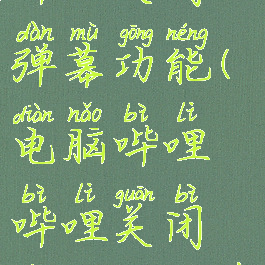 dàn mù gōng néng
弹幕功能(
diàn nǎo bì lì
电脑哔哩
bì lì guān bì
哔哩关闭